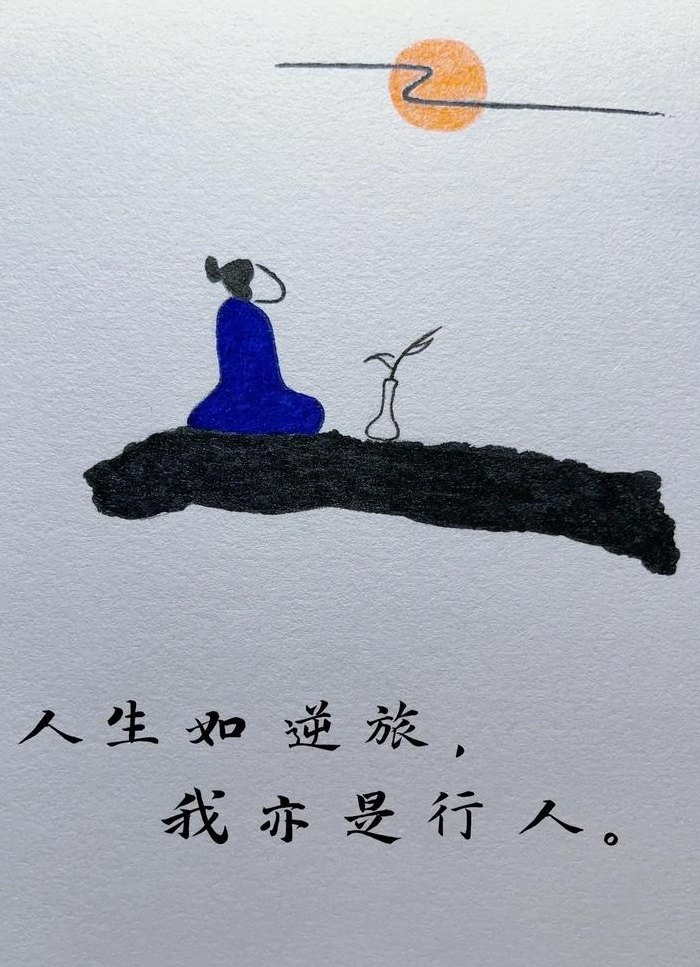 人生如逆旅，
我亦是行人。